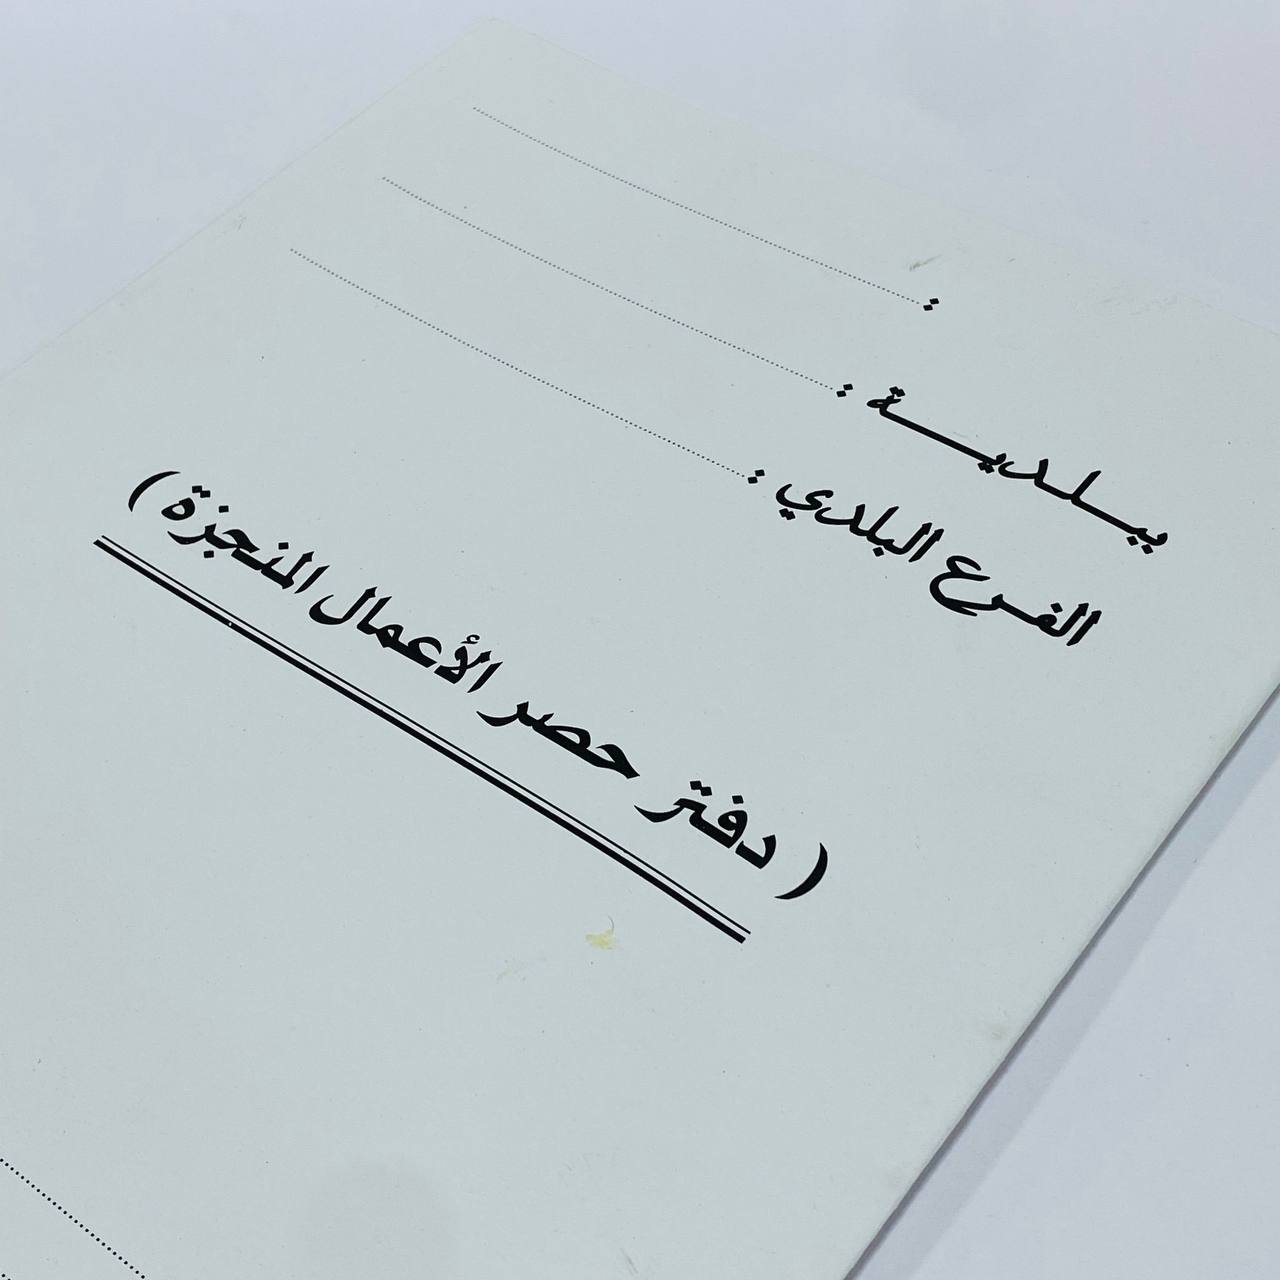 : ..............................
بلديـــة : ..............................
الفرع البلدي : ..............................
( دفتر حصر الأعمال المنجزة )